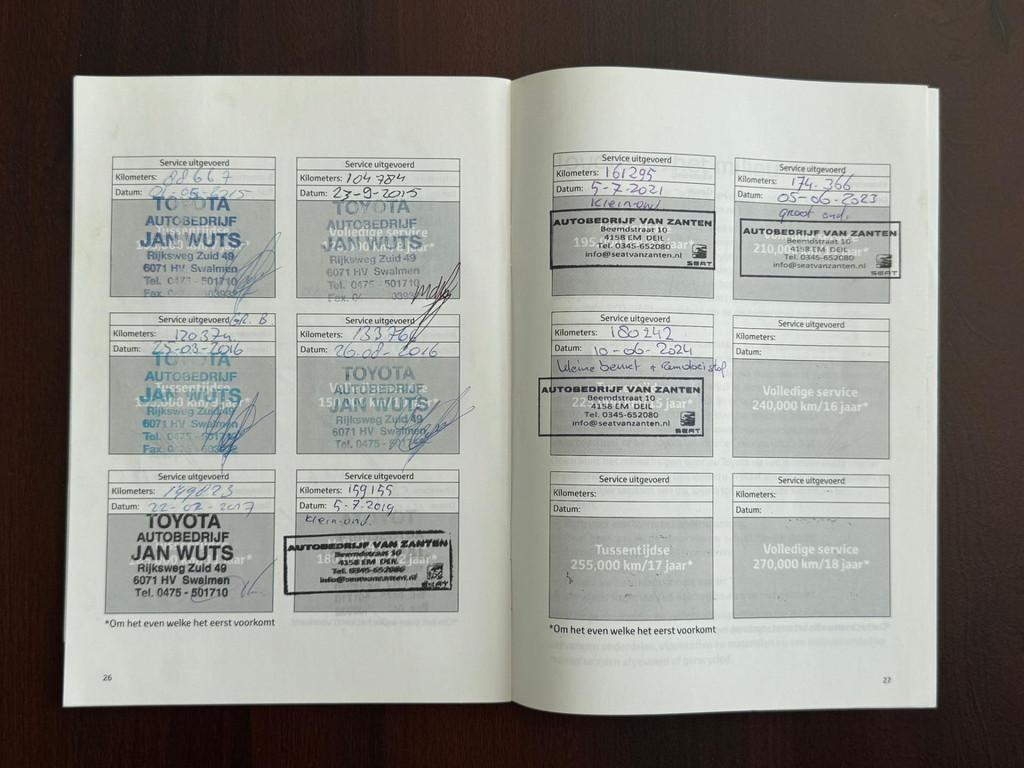 Service uitgevoerd
Kilometers: 88667
Datum:
TOYOTA
AUTOBEDRIJF
JAN WUTS
Rijksweg Zuid 49
6071 HV Swalmen
Tel. 0475 - 501710
Fax.
Service uitgevoerd
Kilometers: 104784
Datum: 23-9-2015
TOYOTA
Volledige service
AUTOBEDRIJF
JAN WUTS
Rijksweg Zuid 49
6071 HV Swalmen
Tel. 0475 - 501710
Fax.
Service uitgevoerd gr. B
Kilometers: 120374
Datum: 23-03-2016
TOYOTA
AUTOBEDRIJF
Tussentijdse
JAN WUTS
Rijksweg Zuid 49
6071 HV Swalmen
Tel. 0475 - 501710
Fax.
Service uitgevoerd
Kilometers:
Datum: 26-08-2016
TOYOTA
AUTOBEDRIJF
JAN WUTS
Rijksweg Zuid 49
6071 HV Swalmen
Tel. 0475 -
Service uitgevoerd
Kilometers: 149823
Datum: 22-02-2017
TOYOTA
AUTOBEDRIJF
JAN WUTS
Rijksweg Zuid 49
6071 HV Swalmen
Tel. 0475 - 501710
Service uitgevoerd
Kilometers: 159155
Datum: 5-7-2019
Klein-ond.
AUTOBEDRIJF VAN ZANTEN
Beemdstraat 10
4158 EM DEIL
Tel. 0345-652080
info@seatvanzanten.nl
SEAT
*Om het even welke het eerst voorkomt
26
Service uitgevoerd
Kilometers: 161295
Datum: 5-7-2021
Klein-ond
AUTOBEDRIJF VAN ZANTEN
Beemdstraat 10
4158 EM DEIL
Tel. 0345-652080
info@seatvanzanten.nl
SEAT
Service uitgevoerd
Kilometers: 174.366
Datum: 05-06-2023
groot ond.
AUTOBEDRIJF VAN ZANTEN
Beemdstraat 10
4158 EM DEIL
Tel. 0345-652080
info@seatvanzanten.nl
SEAT
Service uitgevoerd
Kilometers: 180242
Datum: 10-06-2024
kleine beurt + remvloeistof
AUTOBEDRIJF VAN ZANTEN
Beemdstraat 10
4158 EM DEIL
Tel. 0345-652080
info@seatvanzanten.nl
SEAT
Service uitgevoerd
Kilometers:
Datum:
Volledige service
240,000 km/16 jaar*
Service uitgevoerd
Kilometers:
Datum:
Tussentijdse
255,000 km/17 jaar*
Service uitgevoerd
Kilometers:
Datum:
Volledige service
270,000 km/18 jaar*
*Om het even welke het eerst voorkomt
27